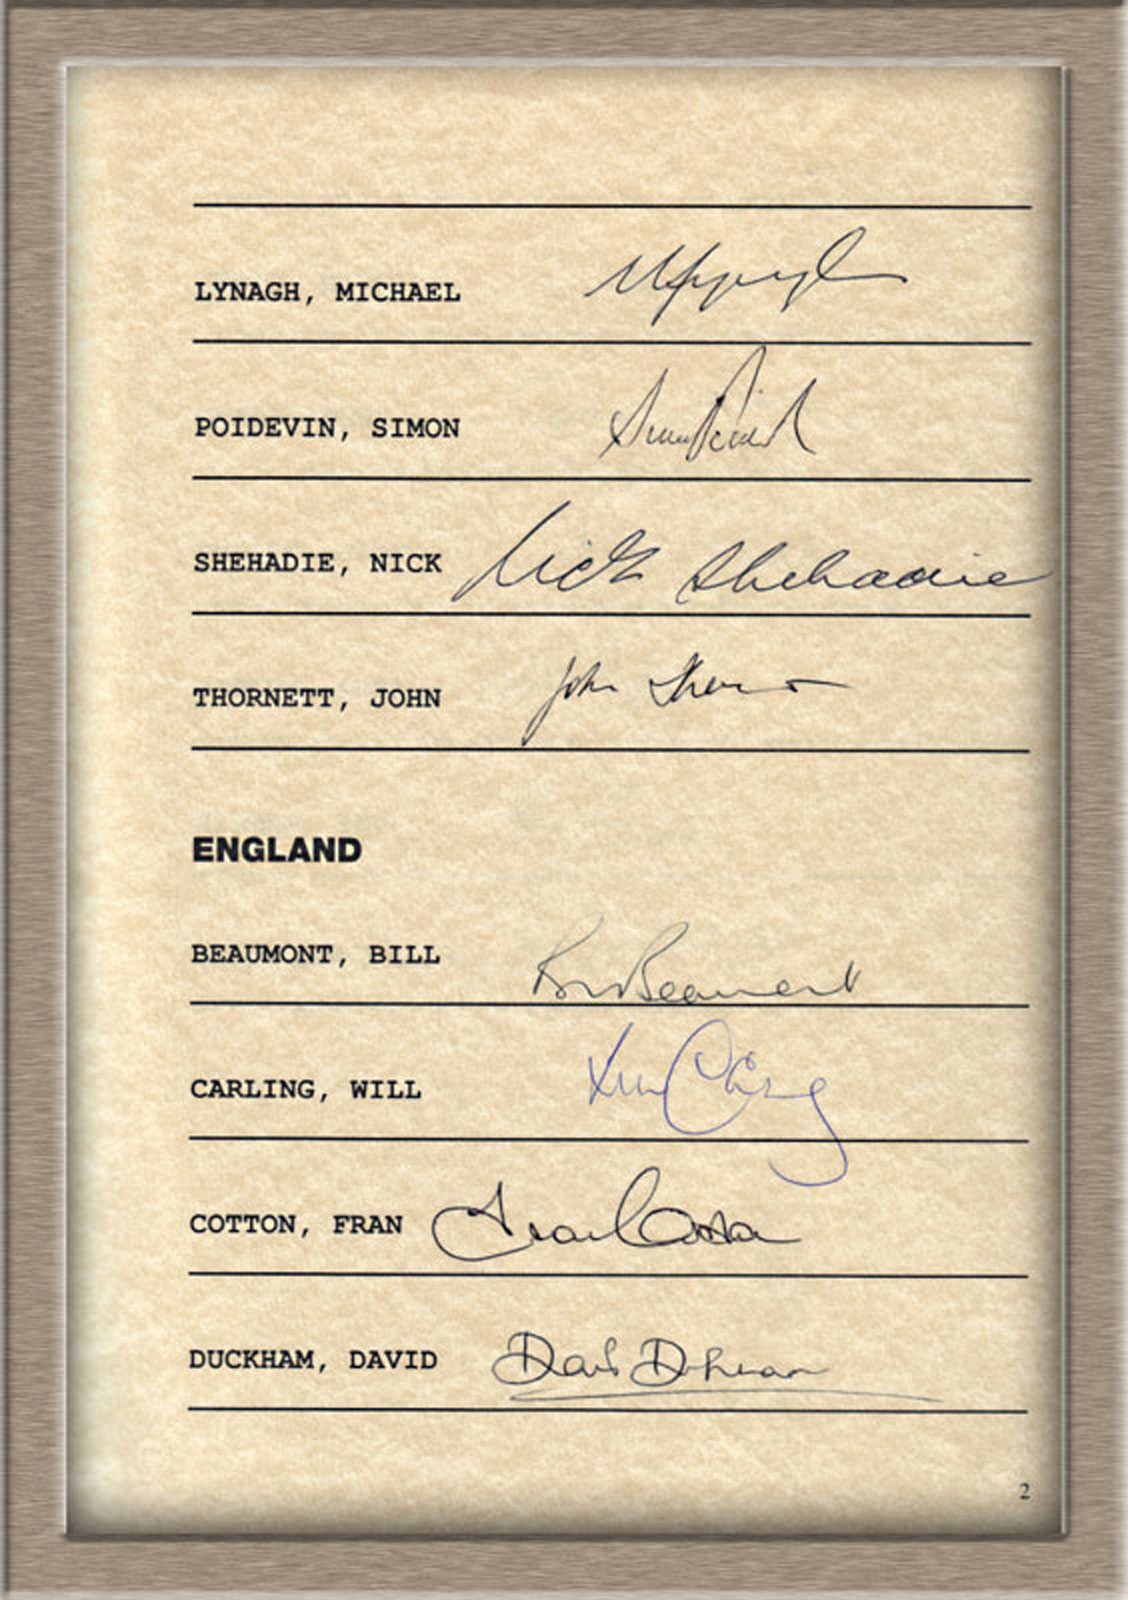 LYNAGH, MICHAEL
POIDEVIN, SIMON
SHEHADIE, NICK Nick Shehadie
THORNETT, JOHN John
ENGLAND
BEAUMONT, BILL Beaumont
CARLING, WILL
COTTON, FRAN Fran Cotton
DUCKHAM, DAVID David Duckham
2